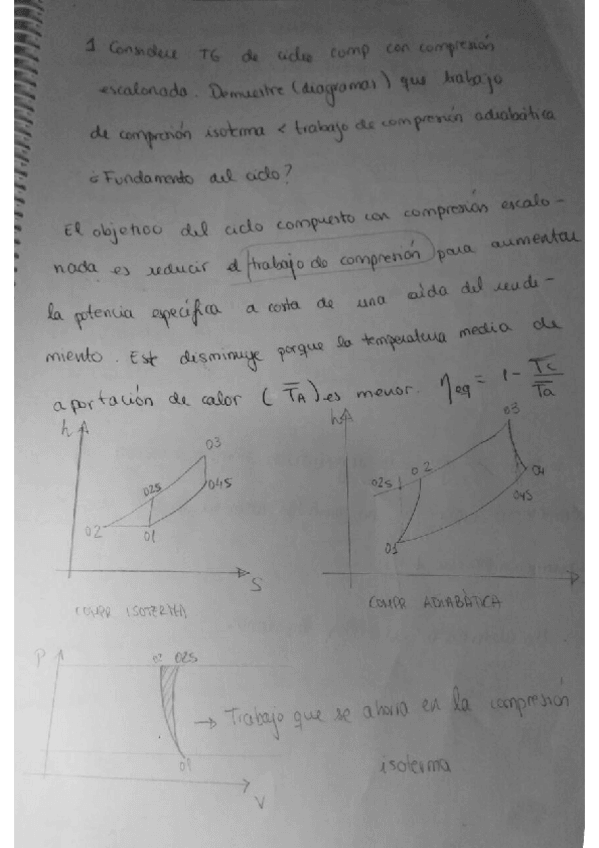 1 Considere TG de ciclo comp con compresión
escalonada. Demuestre (diagramas) que trabajo
de compresión isoterma < trabajo de compresión adiabática
¿Fundamento del ciclo?
El objetivo del ciclo compuesto con compresión escalo-
nada es reducir el trabajo de compresión para aumentar
la potencia específica a costa de una caída del rende-
miento. Este disminuye porque la temperatura media de
aportación de calor (T̅A) es menor. ηeq = 1 - T̅c/T̅a
h
03
025
045
02
01
S
COMPR ISOTERMA
h
03
025
02
04
045
01
COMPR ADIABÁTICA
P
02 025
→ Trabajo que se ahorra en la compresión
isoterma
01
V